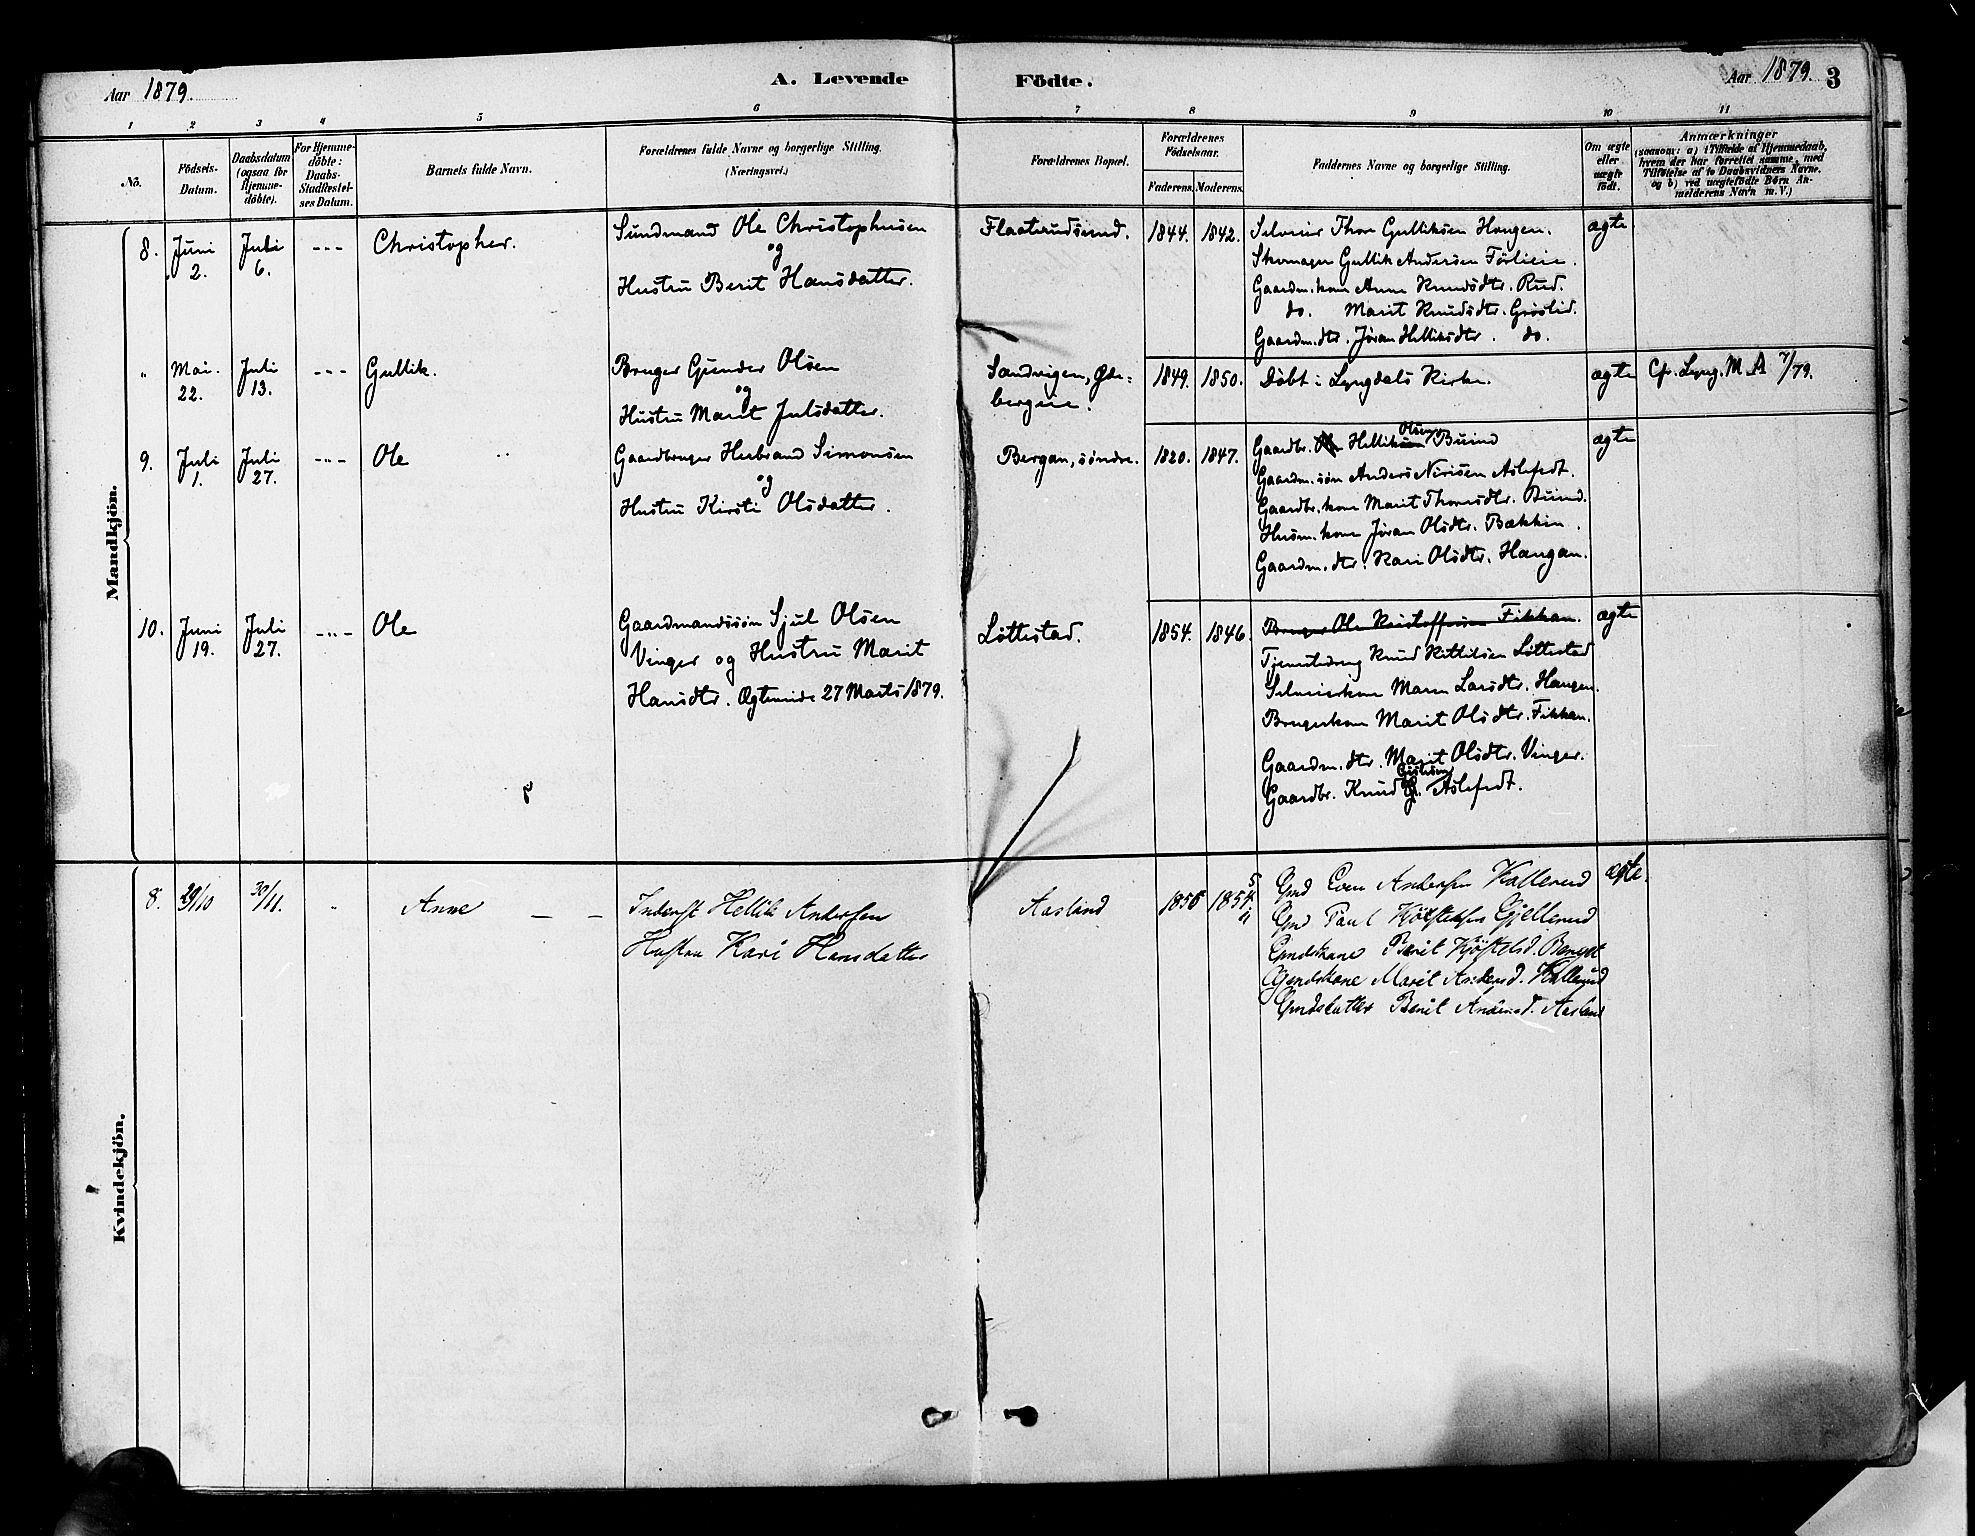 Aar 1879.
A. Levende Födte.
Aar 1879. 3
1 2 3 4 5 6 7 8 9 10 11
No.
Födsels-Datum.
Daabsdatum (ogsaa for Hjemme-döbte).
For Hjemme-döbte: Daabs-Stadfestel-ses Datum.
Barnets fulde Navn.
Forældrenes fulde Navne og borgerlige Stilling. (Næringsvei.)
Forældrenes Bopæl.
Forældrenes Födselsaar.
Faderens. Moderens.
Faddernes Navne og borgerlige Stilling.
Om ægte eller uægte födt.
Anmærkninger
(saasom: a) i Tilfælde af Hjemmedaab,
hvem der har forrettet samme, med
Tilföielse af to Daabsvidners Navne.
og b) ved uægtefödte Börn An-
melderens Navn m. V.)
Mandkjön.
8. Juni 2. Juli 6. -"- Christopher.
Sundmand Ole Christophersen
og
Hustru Berit Hansdatter.
Flaaterudsund. 1844. 1842.
Thor Gulliksen Haugen.
Skomager Gullik Andersen
Gaardm. kone Anne Knudsdtr. Rud.
do. Marit Knudsdtr. Gröslid.
Gaardm. dtr. Jöran Helliksdtr. do.
ægte
" Mai. 22. Juli 13. -"- Gullik.
Bruger Gunder Olsen
og
Hustru Marit Julsdatter.
Sandvigen, Øde-
bergeie.
1849. 1850. Döbt i Lyngdals Kirke. ægte Cfr. Lyng. M A 7/79.
9. Juli 1. Juli 27. -"- Ole
Gaardbruger Herbrand Simonsen
og
Hustru Kirsti Olsdatter.
Bergan, söndre. 1820. 1847.
Gaardbr. Helliksen Olsen Buind
Gaardm. sön Anders Nirisen Aslefedt.
Gaardbr. kone Marit Thorsdtr. Buind.
Husm. kone Jöran Olsdtr. Bækkin.
Gaardm. dtr. Kari Olsdtr. Haugan.
ægte
10. Juni 19. Juli 27. -"- Ole
Gaardmandssön Sjul Olsen
Vinger og Hustru Marit
Hansdtr. Ægteviede 27 Marts 1879.
Löttestad. 1854. 1846.
Bruger Ole Kristoffersen Fikkan.
Tjenestedreng Knud Kittilsen Löttestad
Maren Larsdtr. Haugen.
Brugerkone Marit Olsdtr. Fikkan.
Gaardm. dtr. Marit Olsdtr. Vinger.
Gaardbr. Knud Aslefedt.
ægte
Kvindekjön.
8. 29/10 30/11. " Anne - -
Inderst Hellik Andersen
Hustru Kari Hansdatter
Aasland 1856 1854. 5
Gmd Even Andersen Kallerud
Gmd Paul Kjöstelsen Gjellerud
Gmdskone Berit Kjöstelsd.
Gmdskone Marit Andersd. Kallerud
Gmdsdatter Berit Andersd. Aasland
ægte.